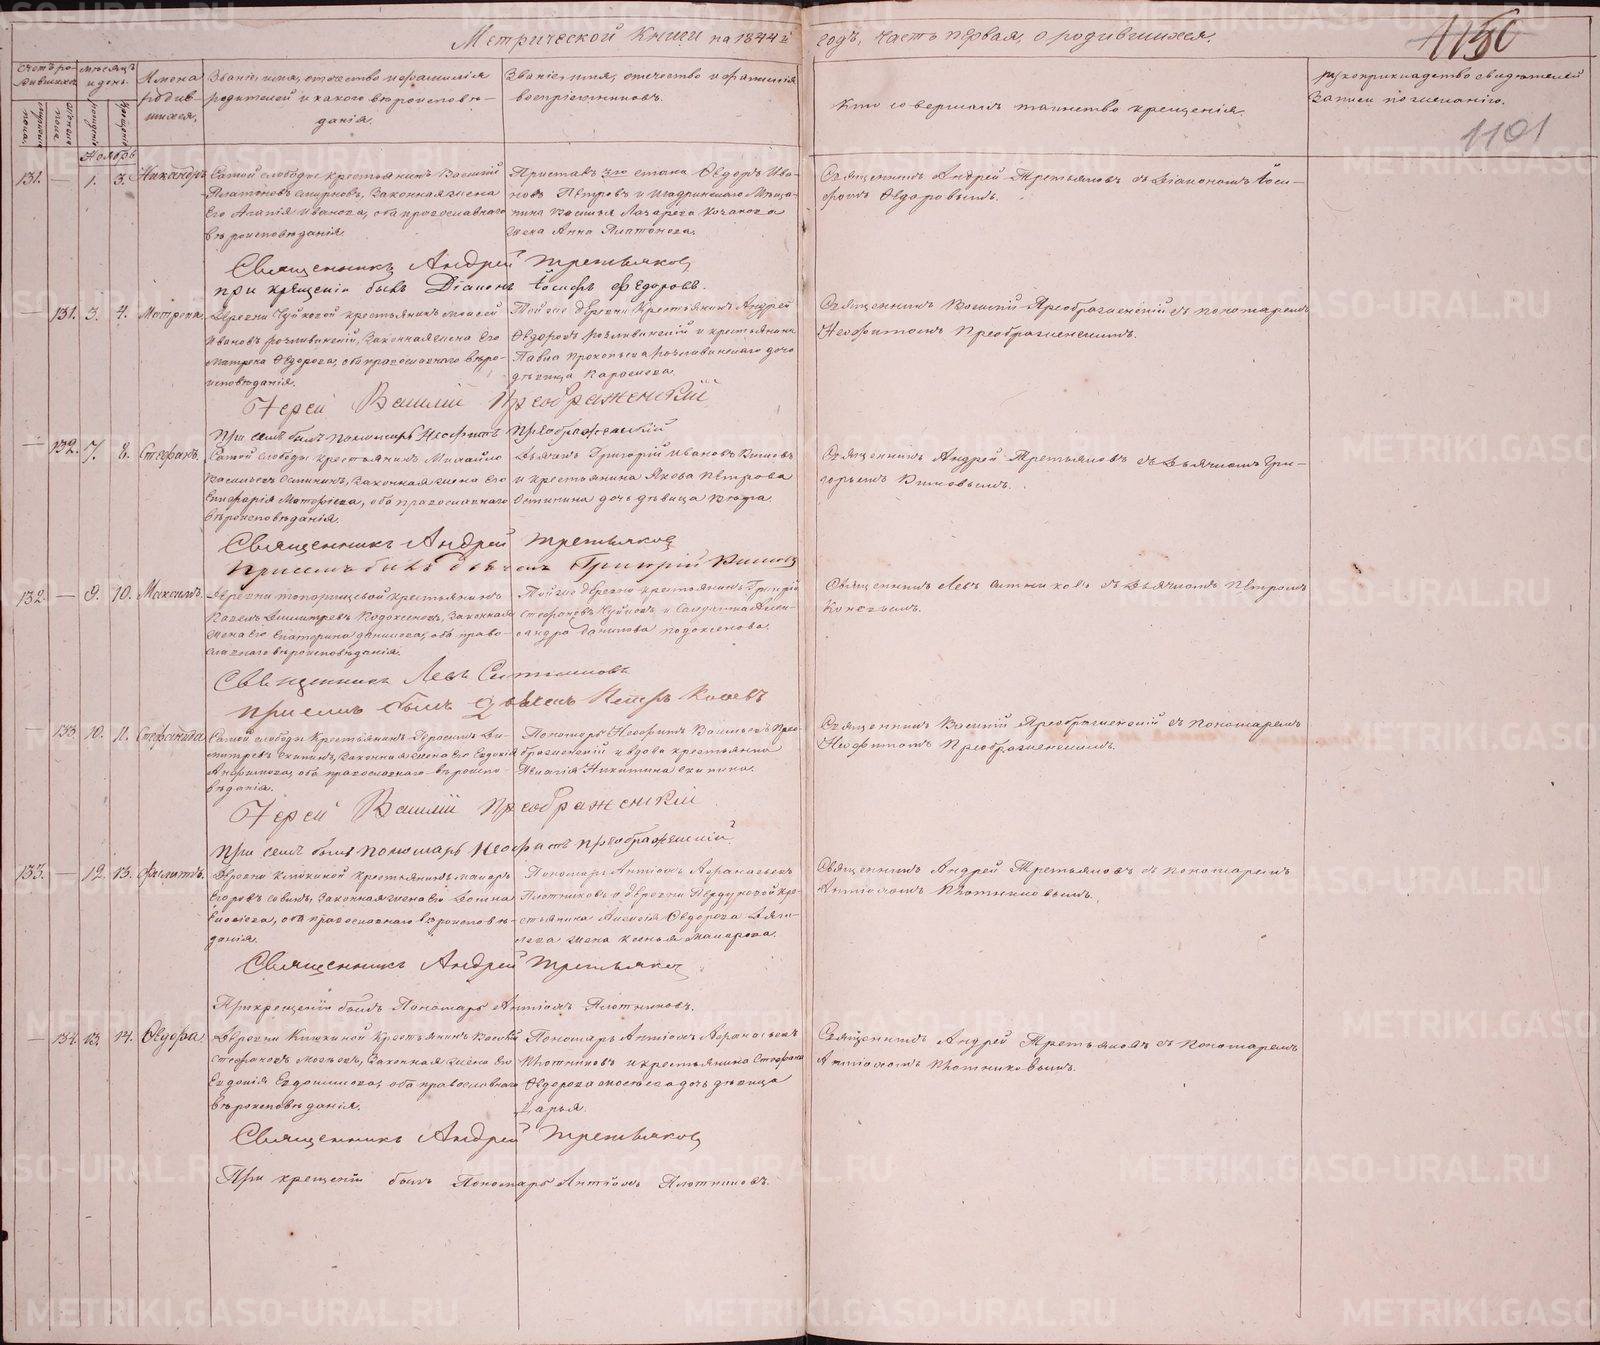 Метрической Книги на 1844й годъ, часть первая, о родившихся.
1150
1101
Счетъ родившихся
мѣсяцъ и день.
Имена родившихся.
Званіе, имя, отчество и фамилія родителей и какого вѣроисповѣданія.
Званіе, имя, отчество и фамилія воспріемниковъ.
Кто совершалъ таинство крещенія.
рукоприкладство свидѣтелей записи по желанію.
Ноябрь
131. — 1. 3. Никандръ
Самой слободы крестьянинъ Василій
Платоновъ Смирновъ, Законная жена
его Агапія Иванова, оба православнаго
вѣроисповѣданія.
Приставъ 3го стана Ѳедоръ Ива-
новъ Петровъ и Шадринскаго Мѣща-
нина Василья Лазарева
жена Анна Платонова.
Священникъ Андрей Третьяковъ съ Діакономъ Іоси-
фомъ Ѳедоровымъ.
Священникъ Андрей Третьяковъ
при крещеніи былъ Діаконъ Іосифъ Федоровъ.
— 131. 3. 4. Матрона
Деревни Чуйковой крестьянинъ Моисей
Ивановъ Законная жена его
Матрона Ѳедорова, оба православнаго вѣро-
исповѣданія.
Той же деревни Крестьянинъ Андрей
Ѳедоровъ и крестьянина
Павла Прокопьева дочь
дѣвица
Священникъ Василій Преображенскій съ пономаремъ
Неофитомъ Преображенскимъ.
Іерей Василій Преображенскій
При семъ былъ пономарь Неофитъ Преображенскій
— 132. 7. 8. Стефанъ.
Самой слободы крестьянинъ Михайло
Васильевъ Законная жена его
оба православнаго
вѣроисповѣданія.
Дьячекъ Григорій Ивановъ
и крестьянина Якова Петрова
дочь дѣвица
Священникъ Андрей Третьяковъ съ Дьячкомъ Гри-
горьемъ
Священникъ Андрей Третьяковъ
При семъ былъ дьячекъ Григорій
132. — 9. 10. Максимъ.
Деревни крестьянинъ
Павелъ Димитревъ Подоксеновъ, Законная
жена его Екатерина Данилова, оба право-
славнаго вѣроисповѣданія.
Той же деревни крестьянинъ Григорій
Стефановъ и Солдатка Алек-
сандра Данилова Подоксенова.
Священникъ Левъ Ситниковъ съ Дьячкомъ Петромъ
Священникъ Левъ Ситниковъ
При семъ былъ Дьячекъ Петръ
— 133. 10. 11. Стефанида
Самой слободы Крестьянинъ Герасимъ Ди-
митревъ Законная жена его Евдокія
оба православнаго вѣроиспо-
вѣданія.
Пономарь Неофитъ Васильевъ Прео-
браженскій и вдова крестьянка
Пелагія Никитина
Священникъ Василій Преображенскій съ Пономаремъ
Неофитомъ Преображенскимъ.
Іерей Василій Преображенскій
При семъ былъ пономарь Неофитъ Преображенскій
133. — 12. 13. Филиппъ.
Деревни крестьянинъ Макаръ
Егоровъ Законная жена его
оба православнаго вѣроисповѣ-
данія.
Пономарь Антіохъ Афанасьевъ
Плотниковъ и деревни кре-
стьянина Алексія Ѳедорова
жена Ксенья Макарова.
Священникъ Андрей Третьяковъ съ пономаремъ
Антіохомъ Плотниковымъ.
Священникъ Андрей Третьяковъ
При крещеніи былъ Пономарь Антіохъ Плотниковъ.
— 134. 13. 14. Ѳедора
Деревни Крестьянинъ Василій
Стефановъ Законная жена его
Евдокія оба православнаго
вѣроисповѣданія.
Пономарь Антіохъ Афанасьевъ
Плотниковъ и крестьянина Стефана
Ѳедорова дочь дѣвица
Дарья.
Священникъ Андрей Третьяковъ съ Пономаремъ
Антіохомъ Плотниковымъ.
Священникъ Андрей Третьяковъ
При крещеніи былъ Пономарь Антіохъ Плотниковъ.
METRIKI.GASO-URAL.RU